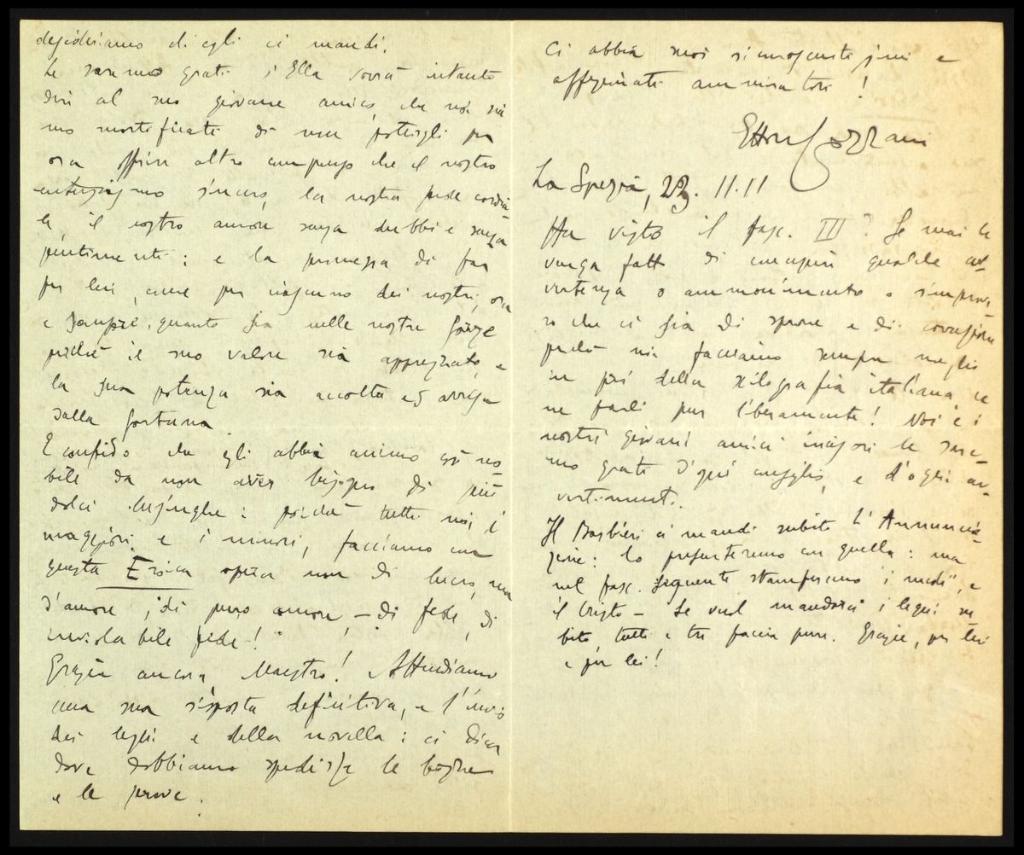 desideriamo ch'egli ci mandi.
Le saremo grati s'Ella vorrà intanto
dire al suo giovane amico che noi sia
mo mortificati di non potergli per
ora offrire altro compenso che il nostro
entusiasmo sincero, la nostra fede cordia
le, il nostro amore senza dubbi e senza
pentimenti: e la promessa di fare
per lui, come per ciascuno dei nostri, ora
e sempre, quanto sia nelle nostre forze
perchè il suo valore sia apprezzato, e
la sua potenza sia accolta ed arrisa
dalla fortuna.
E confido che egli abbia animo così no
bile da non aver bisogno di più
dolci lusinghe: poichè tutti noi, i
maggiori e i minori, facciamo con
questa Eroica opera non di lucro, ma
d'amore, di puro amore, – di fede, di
inviolabile fede!
Grazie ancora, Maestro! Attendiamo
una sua risposta definitiva, e l'invio
dei legni e della novella: ci dica
dove dobbiamo spedire le bozze
e le prove.
Ci abbia suoi riconoscentissimi e
affezionati ammiratori!
Ettore Cozzani
La Spezia, 23. 11. 11
Ha visto il fasc. III? Se mai le
venga fatto di concepire qualche av-
vertenza o ammonimento o rimprove
ro che ci sia di sprone e di correzione
perchè noi facciamo sempre meglio
in prò della xilografia italiana, ce
ne parli pur liberamente! Noi e i
nostri giovani amici incisori le sare-
mo grati d'ogni consiglio, e d'ogni av-
vertimento.
Il Barbieri ci mandi subito l'Annuncia
zione: lo presenteremo con quella: ma
nel fasc. seguente stamperemo i nudi, e
il Cristo – Se vuol mandarci i legni su
bito tutti e tre faccia pure. Grazie, per lei
e per lui!